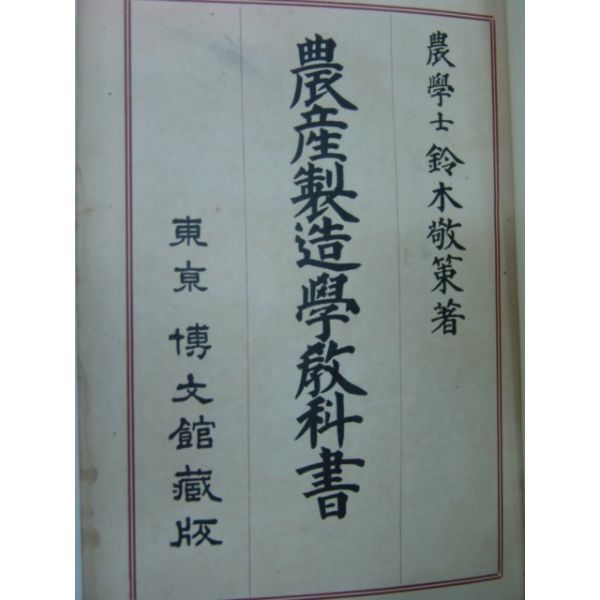 農學士 鈴木敬策著
農産製造學敎科書
東京 博文館藏版